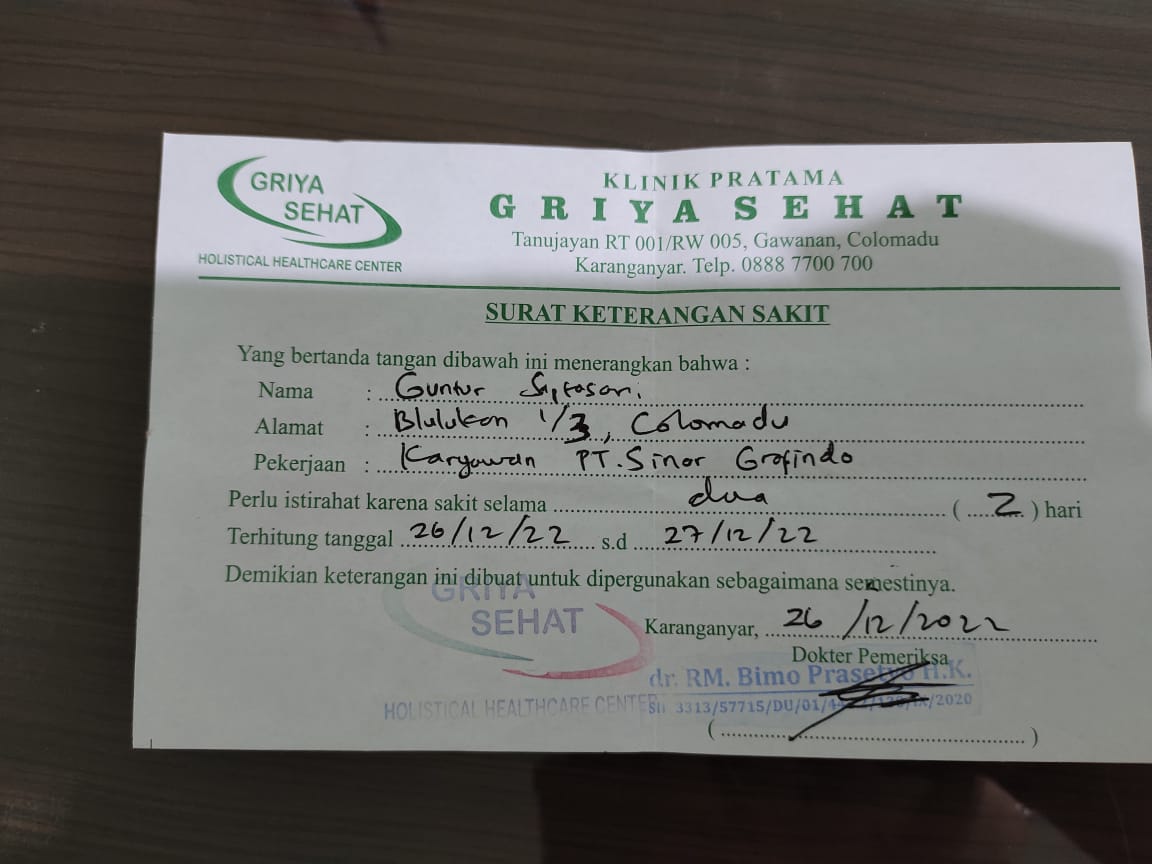 GRIYA
SEHAT
HOLISTICAL HEALTHCARE CENTER
KLINIK PRATAMA
GRIYA SEHAT
Tanujayan RT 001/RW 005, Gawanan, Colomadu
Karanganyar. Telp. 0888 7700 700
SURAT KETERANGAN SAKIT
Yang bertanda tangan dibawah ini menerangkan bahwa :
Nama : Guntur
Alamat : Blulukan 1/3, Colomadu
Pekerjaan : Karyawan PT. Sinar Grafindo
Perlu istirahat karena sakit selama dua ( 2 ) hari
Terhitung tanggal 26/12/22 s.d 27/12/22
Demikian keterangan ini dibuat untuk dipergunakan sebagaimana semestinya.
GRIYA
SEHAT
HOLISTICAL HEALTHCARE CENTER
Karanganyar, 26/12/2022
Dokter Pemeriksa
dr. RM. Bimo Prasetyo H.K.
3313/57715/DU/01/
(                    )